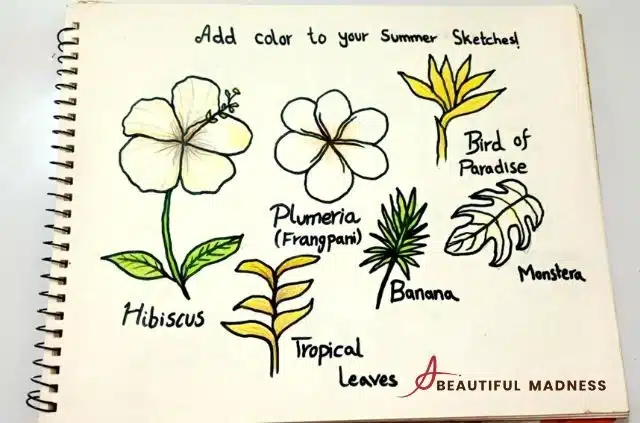 Add color to your Summer Sketches!
Bird of
Paradise
Plumeria
(Frangpani)
Monstera
Banana
Hibiscus
Tropical
Leaves
A BEAUTIFUL MADNESS